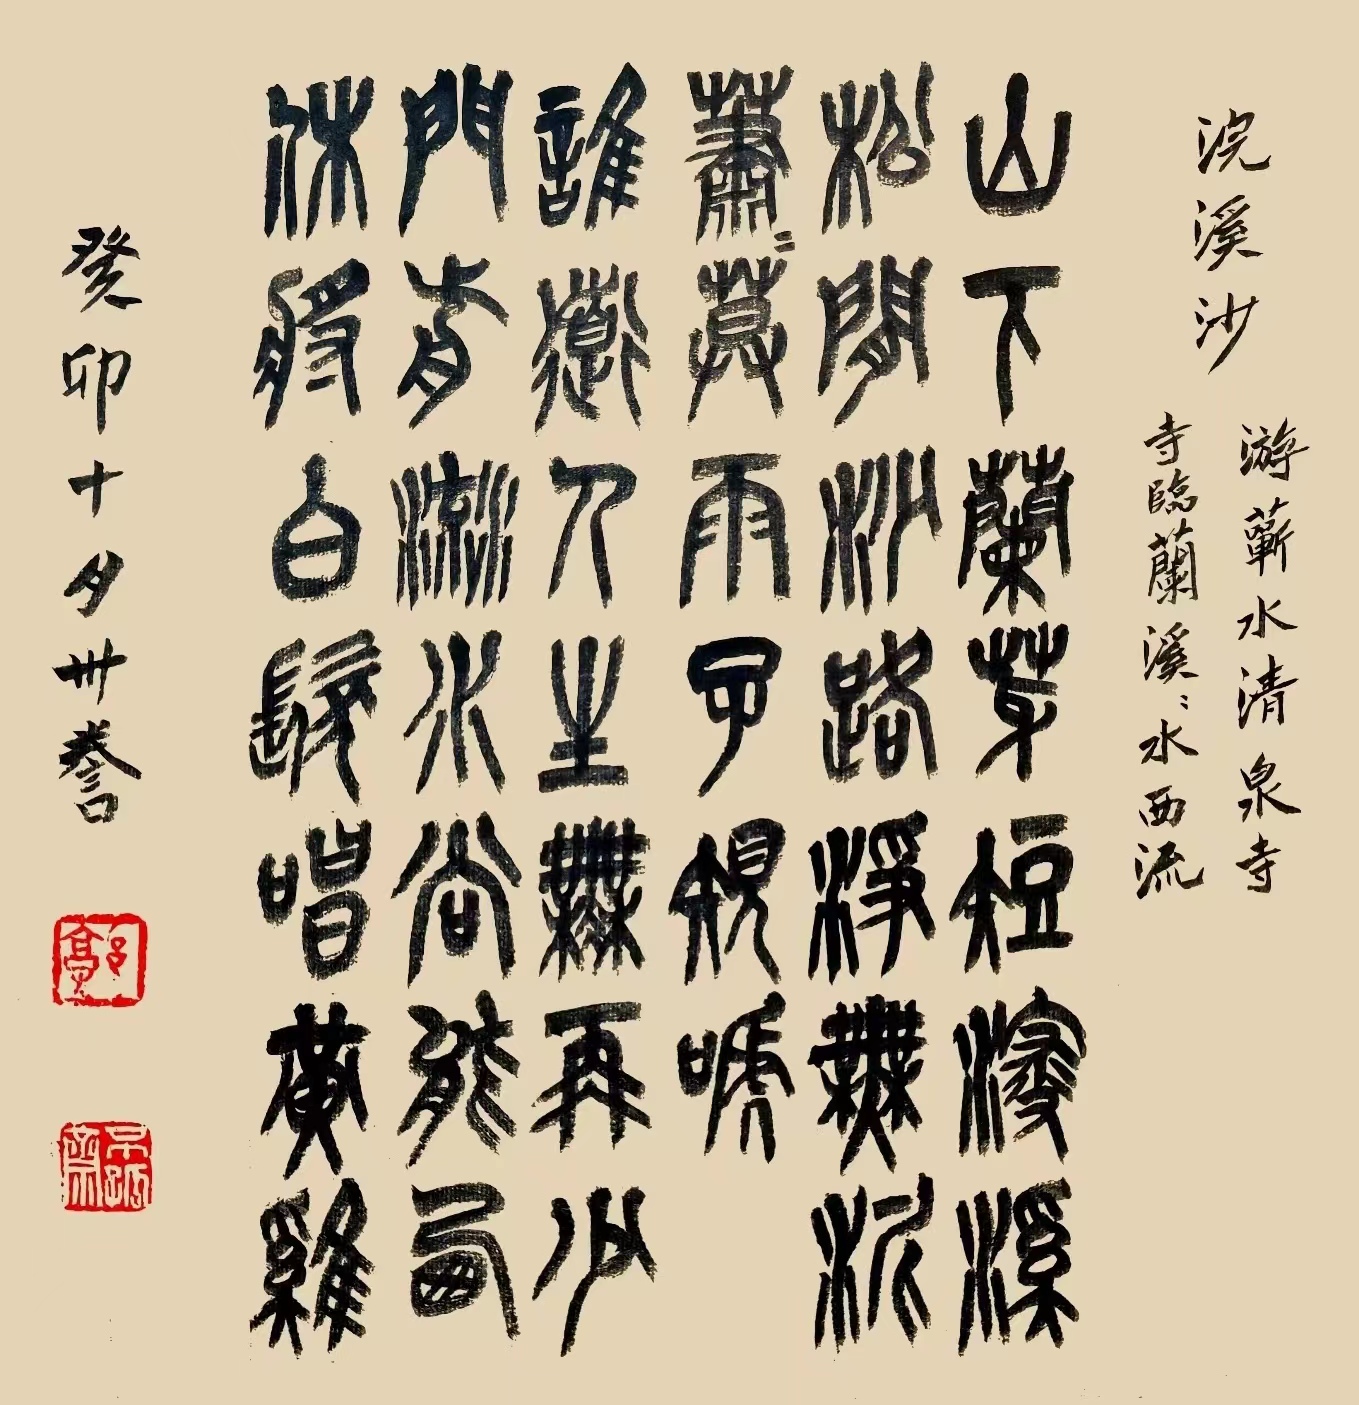 浣溪沙
游蘄水清泉寺
寺臨蘭溪〻水西流
山下蘭芽短浸溪
松閒沙路淨無泥
蕭〻莫雨子規嗁
誰道人生無再少
門前流水尚能西
休將白髮唱黃雞
癸卯十月卅誊